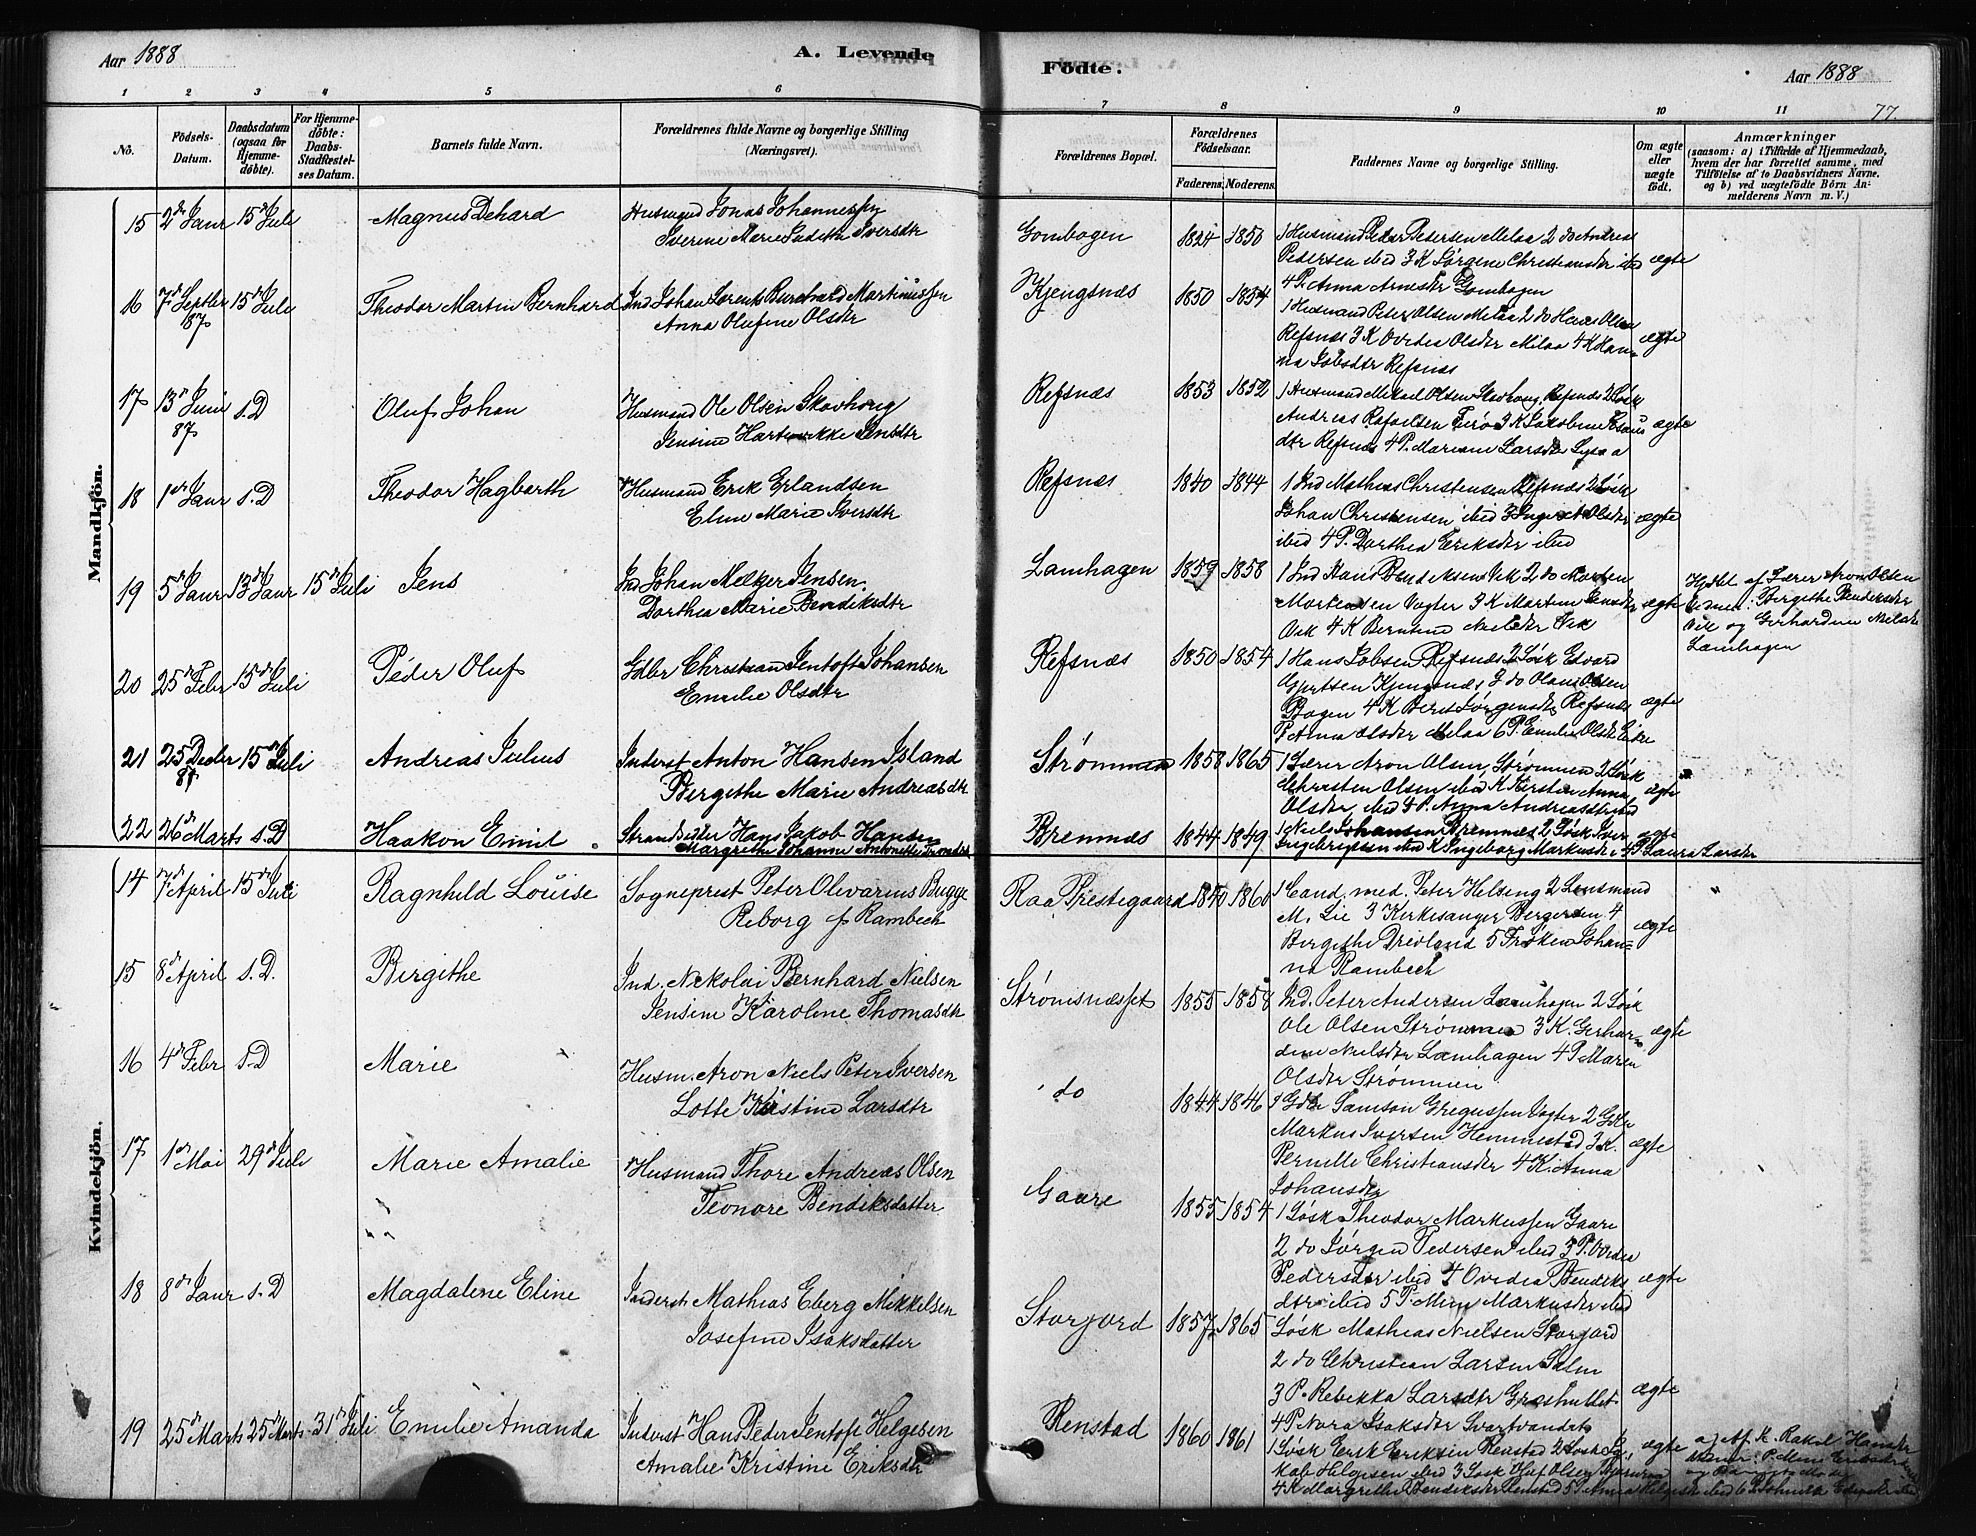 Aar 1888
A. Levende
Födte.
Aar 1888
77
1 2 3 4 5 6 7 8 9 10 11
Nô.
Födsels-
Datum.
Daabsdatum
(ogsaa för
Hjemme-
döbte).
For Hjemme-
döbte:
Daabs-
Stadfæstel-
ses Datum.
Barnets fulde Navn.
Forældrenes fulde Navne og borgerlige Stilling
(Næringsvei).
Forældrenes Bopæl.
Forældrenes
Födselsaar.
Faderens. Moderens.
Faddernes Navne og borgerlige Stilling.
Om ægte
eller
uægte
födt.
Anmærkninger
(saasom: a) i Tilfælde af Hjemmedaab,
hvem der har forrettet samme, med
Tilföielse af to Daabsvidners Navne.
og b) ved uægtefödte Börn An-
melderens Navn m. V.)
Mandkjön.
15 2de Janr 15de Juli Magnus Dehard Husmand Jonas Johannessen
Iverine Marie Judithe Iversdtr
Gombogen 1824 1850 1 Husmand Peder Pedersen Melaa 2 do Andreas
Pedersen ibid 3 K Jørgine Christiansdtr ibid ægte
4 P. Anna Arnesdtr Gombogen
16 7de Septbr 87 15de Juli Theodor Martin Bernhard Ind Johan Lorents Burchard Martinussen
Anna Olufine Olsdtr
Kjengsnæs 1850 1854 1 Husmand Peter Olsen Melaa 2 do Hans Olsen
Refsnæs 3 K Ovedia Olsdtr Melaa 4 K Han- ægte
na Jobsdtr Refsnæs
17 13de Juni 87 s. D Oluf Johan Husmand Ole Olsen Skovhoug
Jensine Hartvikke Jensdtr
Refsnæs 1853 1852 1 Husmand Mikael Olsen Skovhoug, Refsnæs 2 Løsk
Andreas 3 K Jakobine ægte
dtr Refsnæs 4 P. Larsdtr
18 1de Janr s. D Theodor Hagbarth Husmand Erik Erlandsen
Eline Marie Iversdtr
Refsnæs 1840 1844 1 Ind Mathias Christensen Refsnæs 2 Løsk
Johan Christensen ibid 3 Olsdtr ægte
ibid 4 P. Dorthea Eriksdtr ibid
19 5de Janr 13de Janr 15de Juli Jens Ind Johan Melkjer Jensen
Dorthea Marie Bendiksdtr
Lamhagen 1859 1858 1 Ind Hans Bendiksen Vik 2 do Morten
Mortensen Vagter 3 K Martine Jensdtr ægte
Vik 4 K Nielsdtr Vik
Hjdbt af Lærer Aron Olsen
Vidner: Birgithe Bendiksdtr
Vik og Gerhardine Nielsdtr
Lamhagen
20 25de Febr 15de Juli Peder Oluf Gdbr Christian Jentoft Johansen
Emilie Olsdtr
Refsnæs 1850 1854 1 Hans Jobsen Refsnæs 2 Løsk Edvard
Kjengsnæs 3 do Olsen
Bogen 4 K Berit Jørgensdtr Refsnæs ægte
Anna Olsdtr Melaa 6 P. Emilie Olsdtr
21 25 Decbr 87 15de Juli Andreas Julius Inderst Anton Hansen Island
Birgithe Marie Andreasdtr
Strømmen 1858 1865 1 Lærer Aron Olsen, Strømmen 2 Løsk
Christen Olsen ibid K Kirsten Anna ægte
Olsdtr ibid 4 P. Anna Andreasdtr ibid
22 26de Marts s. D Haakon Emil Strandsidder Hans Jakob Hansen
Margrethe Johanne Antonette
Bremnæs 1844 1849 1 Niels Johansen Bremnæs 2 Løsk Iver ægte
Ingebrigtsen ibid K Ingeborg Markusdtr 4 P Laura Larsdtr
Kvindekjön.
14 7de April 15de Juli Ragnhild Louise Sogneprest Peter Olivarius Bugge
Reborg f. Rambech
Raa Prestegaard 1840 1860 1 Cand. med. Peter Helsing 2 Lensmand
M. Lie 3 Kirkesanger Bergersen 4 ægte
Bergithe 5 Frøken Johan-
na Rambech
15 8de April s. D. Birgithe Ind. Nikolai Bernhard Nielsen
Jensine Karoline Thomasdtr
Strømsnæsset 1855 1858 Ind. Peter Andersen Lamhagen 2 Løsk
Ole Olsen Strømmen 3 K. Gerhar- ægte
dine Nielsdtr Lamhagen 4 P Maren
Olsdtr Strømmen
16 4de Febr s. D Marie Husm. Aron Niels Peter Iversen
Lotte Kristine Larsdtr
do 1844 1846 1 Gdbr Samson Gregussen Vagter 2 Gdbr
Markus Iversen Hemmestad 3 K. ægte
Pernille Christiansdtr 4 K. Anna
Johansdtr
17 1de Mai 29de Juli Marie Amalie Husmand Thore Andreas Olsen
Leonore Bendiksdatter
Gaare 1855 1854 1 Løsk Theodor Markussen Gaare
2 do Jørgen Pedersen ibid 3 P. Ovedia
Pedersdtr ibid 4 Ovedia Bendiks ægte
dtr ibid 5 P. Markusdtr ibid
18 8de Janr s. D Magdalene Eline Inderst Mathias Eberg Mikkelsen
Josefine Isaksdatter
Storjord 1857 1865 Løsk Mathias Nielsen Storjord
2 do Christian Larsen
3 P. Rebekka Larsdtr Græsholtet ægte
4 P Nora Isaksdtr Svartvandets
19 25de Marts 25de Marts 31de Juli Emilie Amanda Inderst Hans Peder Jentoft Helgesen
Amalie Kristine Eriksdtr
Renstad 1860 1861 1 Løsk Erik Eriksen Renstad 2 Løsk Ja- ægte
kob Helgesen ibid 3 Løsk Oluf Olsen
4 K Margrethe Bendiksdtr Renstad 5 P. Anna Helgesdtr ibid 6 P.
a) Af K. Rakel Hansdtr
Vidner: